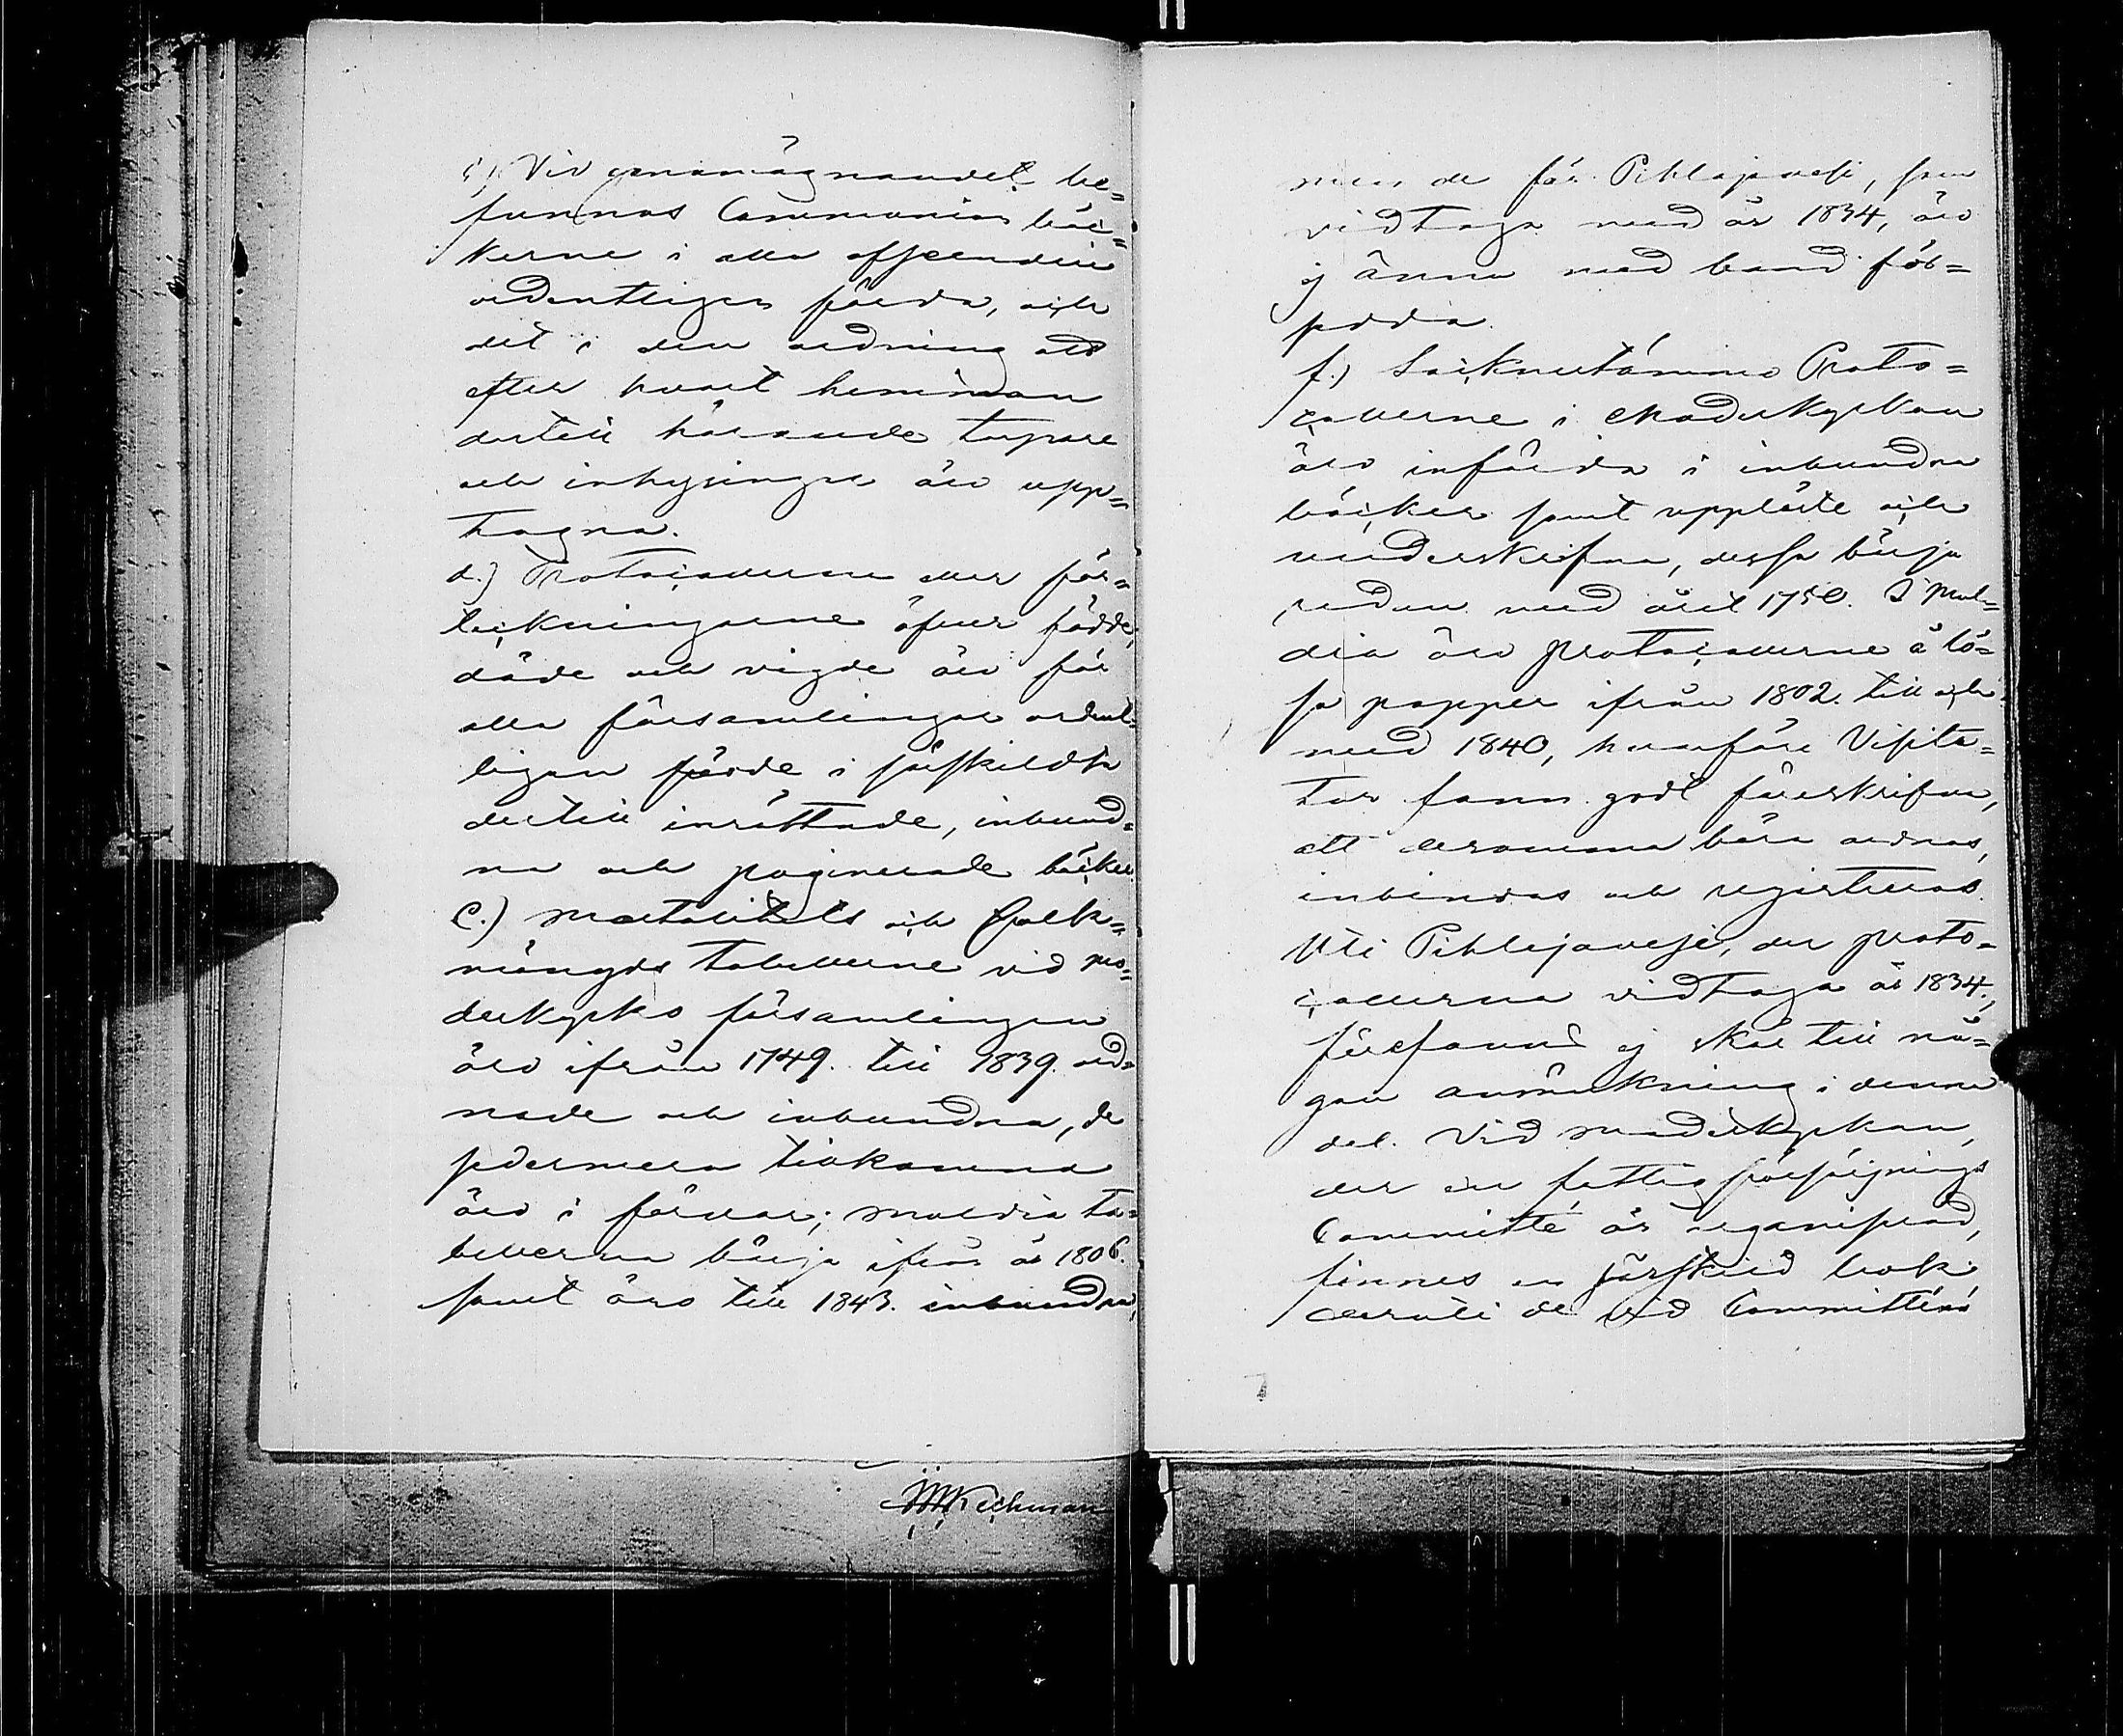 c.) Vid genomögnandet be=
funnos Communion böc=
kerne i alla afseenden
ordentligen förda, och
det i den ordning att
efter hvart hemman
dertill hörande torpare
och inhysingar äro upp=
tagna.
d.) Protocollerne eller för=
teckningarne öfver födde,
döde och vigde äro för
alla församlingar ordent=
ligen förde i särskildta
dertill inrättade, inbund=
na och paginerade böcker.
e.) Mortalitets och Folk=
mängds tabellerne vid mo=
derkyrko församlingen
äro ifrån 1749. till 1839. ord=
nade och inbundna, de
sedermera tillkomna
äro i förvar; Muldia ta=
bellerna börja ifrån år 1806.
samt äro till 1843. inbundna,
men de för Pihlajavesi, som
vidtaga med år 1834, äro
ej ännu med band för=
sedda.
f.) Socknestämmo Proto=
collerne i Moderkyrkan
äro införda i inbundna
böcker samt uppläste och
underskrifna, dessa börja
redan med året 1750. I Mul=
dia äro protocollerne å lö=
sa papper ifrån 1802. till och
med 1840, hvarföre Visita=
tor fann godt föreskrifva,
att desamma böra ordnas,
inbindas och registreras.
Uti Pihlajavesi, der proto=
collerna vidtaga år 1834.,
förefanns ej skäl till nå=
gon anmärkning i denna
del. Vid moderkyrkan,
der en fattigförsörjnings
Committé är organiserad,
finnes en särskild bok
deruti de vid Committéns